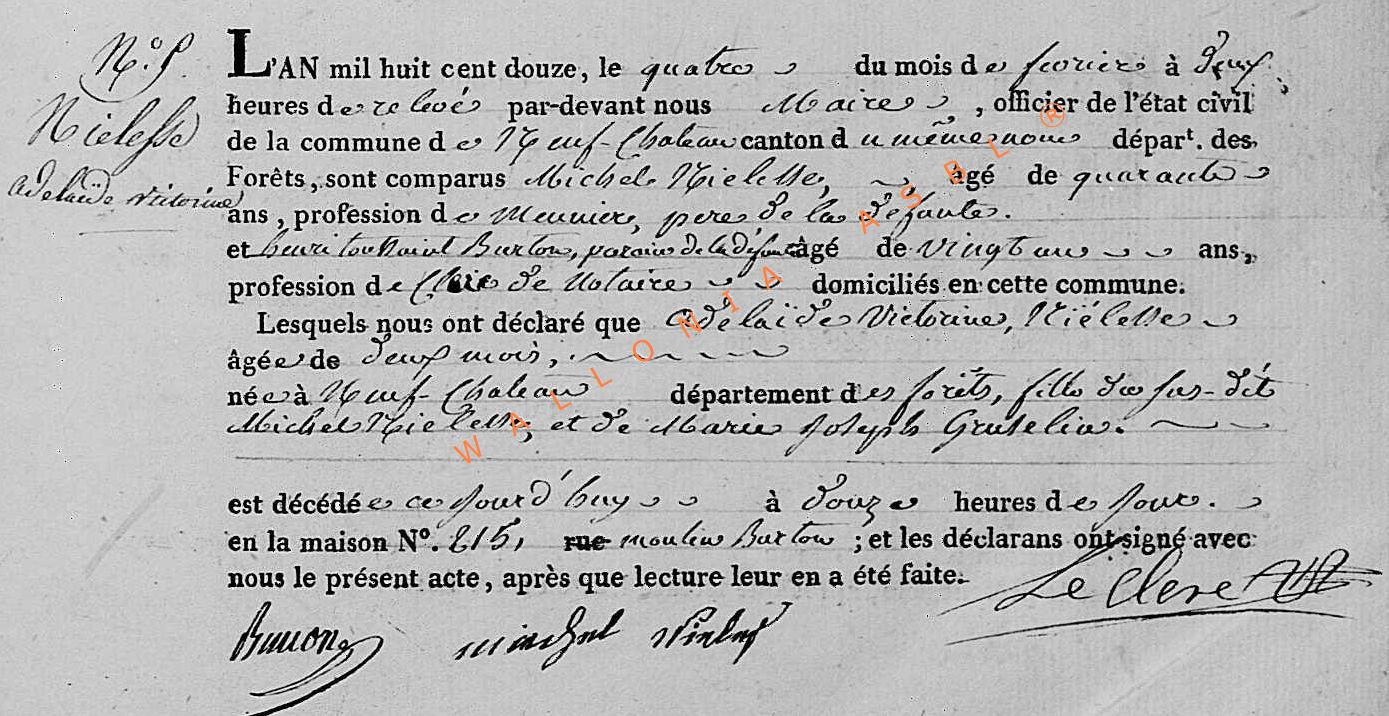 N.° 5.
Nielesse
adelaïde victorine
L'AN mil huit cent douze, le quatre du mois de fevrier à deux
heures de relevé par-devant nous Maire, officier de l'état civil
de la commune de Neuf-Chateau canton du même nom départ. des
Forêts, sont comparus Michel Nielesse, âgé de quarante
ans, profession de Meunier, pere de la défunte.
et henri toussaint Burton, parain de la défunte âgé de vingt un ans,
profession de Clerc de Notaire domiciliés en cette commune.
Lesquels nous ont déclaré que adelaïde Victorine, Niélesse
âgée de deux mois,
née à Neuf-Chateau département des forêts, fille du sus-dit
Michel Nielesse, et de Marie Joseph Gruselin.
est décédée ce jourd'huy à douze heures de jour.
en la maison N°. 215, rue moulin Burton ; et les déclarans ont signé avec
nous le présent acte, après que lecture leur en a été faite.
Le Clerc
Burton michel
WALLONIA ASBL ®